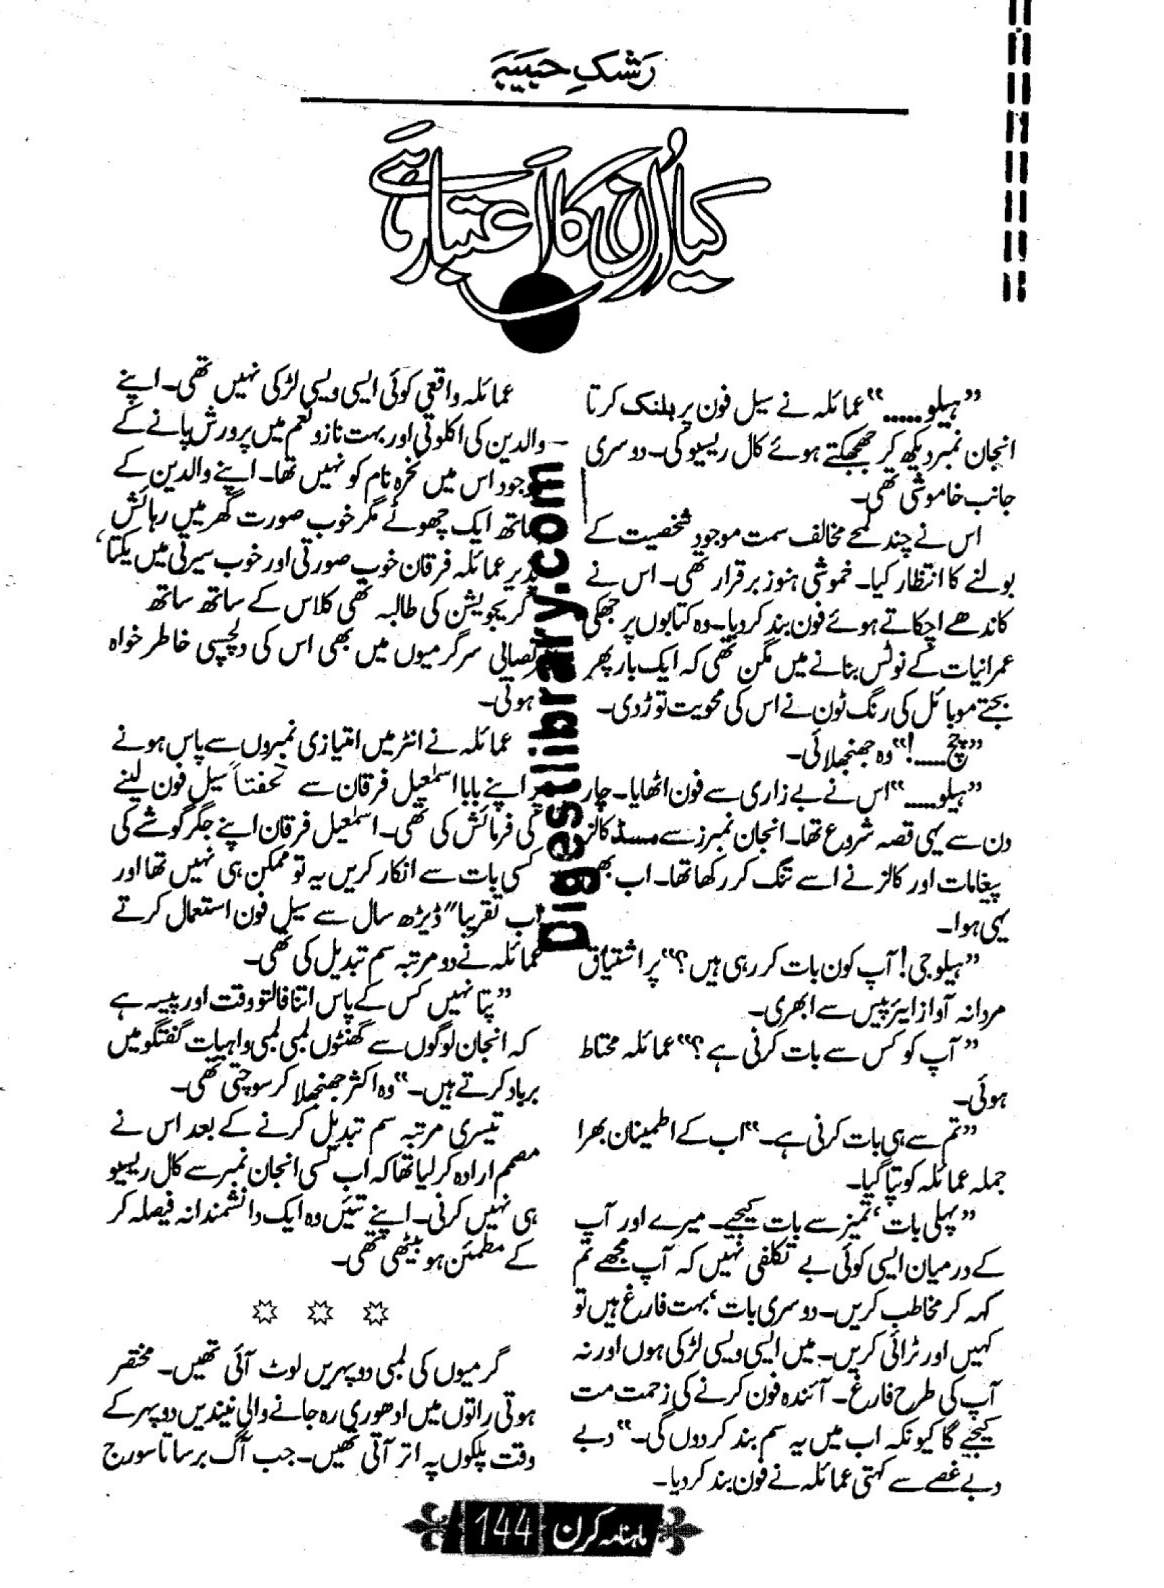 رَشکِ حبیبہ
کیا اُن کا اعتبار ہائے
”ہیلو.....“ عمائلہ نے سیل فون پر بلنک کرتا
انجان نمبر دیکھ کر جھجکتے ہوئے کال ریسیو کی۔ دوسری
جانب خاموشی تھی۔
اس نے چند لمحے مخالف سمت موجود شخصیت کے
بولنے کا انتظار کیا۔ خموشی ہنوز برقرار تھی۔ اس نے
کاندھے اچکاتے ہوئے فون بند کر دیا۔ وہ کتابوں پر جھکی
عمرانیات کے نوٹس بنانے میں مگن تھی کہ ایک بار پھر
بجتے موبائل کی رنگ ٹون نے اس کی محویت توڑ دی۔
”چچ.....!“ وہ جھنجلائی۔
”ہیلو.....“ اس نے بے زاری سے فون اٹھایا۔ چار
دن سے یہی قصہ شروع تھا۔ انجان نمبرز سے مسڈ کالز
پیغامات اور کالز نے اسے تنگ کر رکھا تھا۔ اب بھی
یہی ہوا۔
”ہیلو جی! آپ کون بات کر رہی ہیں؟“ پر اشتیاق
مردانہ آواز ایئرپیس سے ابھری۔
”آپ کو کس سے بات کرنی ہے؟“ عمائلہ محتاط
ہوئی۔
”تم سے ہی بات کرنی ہے۔“ اب کے اطمینان بھرا
جملہ عمائلہ کو تپا گیا۔
”پہلی بات‘ تمیز سے بات کیجیے۔ میرے اور آپ
کے درمیان ایسی کوئی بے تکلفی نہیں کہ آپ مجھے تم
کہہ کر مخاطب کریں۔ دوسری بات‘ بہت فارغ ہیں تو
کہیں اور ٹرائی کریں۔ میں ایسی ویسی لڑکی ہوں اور نہ
آپ کی طرح فارغ۔ آئندہ فون کرنے کی زحمت مت
کیجیے گا کیونکہ اب میں یہ سم بند کر دوں گی۔“ دبے
دبے غصے سے کہتی عمائلہ نے فون بند کر دیا۔
عمائلہ واقعی کوئی ایسی ویسی لڑکی نہیں تھی۔ اپنے
والدین کی اکلوتی اور بہت نازو نعم میں پرورش پانے کے
وجود اس میں نخرہ نام کو نہیں تھا۔ اپنے والدین کے
ساتھ ایک چھوٹے مگر خوب صورت گھر میں رہائش
پذیر عمائلہ فرقان خوب صورتی اور خوب سیرتی میں یکتا‘
گریجویشن کی طالبہ تھی کلاس کے ساتھ ساتھ
نصابی سرگرمیوں میں بھی اس کی دلچسپی خاطر خواہ
ہوتی۔
عمائلہ نے انٹر میں امتیازی نمبروں سے پاس ہونے
پر اپنے بابا اسمٰعیل فرقان سے تحفتاً سیل فون لینے
کی فرمائش کی تھی۔ اسمٰعیل فرقان اپنے جگر گوشے کی
کسی بات سے انکار کریں یہ تو ممکن ہی نہیں تھا اور
اب تقریباً ڈیڑھ سال سے سیل فون استعمال کرتے
عمائلہ نے دو مرتبہ سم تبدیل کی تھی۔
”پتا نہیں کس کے پاس اتنا فالتو وقت اور پیسہ ہے
کہ انجان لوگوں سے گھنٹوں لمبی لمبی واہیات گفتگو میں
برباد کرتے ہیں۔“ وہ اکثر جھنجھلا کر سوچتی تھی۔
تیسری مرتبہ سم تبدیل کرنے کے بعد اس نے
مصمم ارادہ کر لیا تھا کہ اب کسی انجان نمبر سے کال ریسیو
ہی نہیں کرنی۔ اپنے تئیں وہ ایک دانشمندانہ فیصلہ کر
کے مطمئن ہو بیٹھی تھی۔
گرمیوں کی لمبی دوپہریں لوٹ آئی تھیں۔ مختصر
ہوتی راتوں میں ادھوری رہ جانے والی نیندیں دوپہر کے
وقت پلکوں پہ اتر آتی تھیں۔ جب آگ برساتا سورج
Digestlibrary.com
ماہنامہ کرن 144